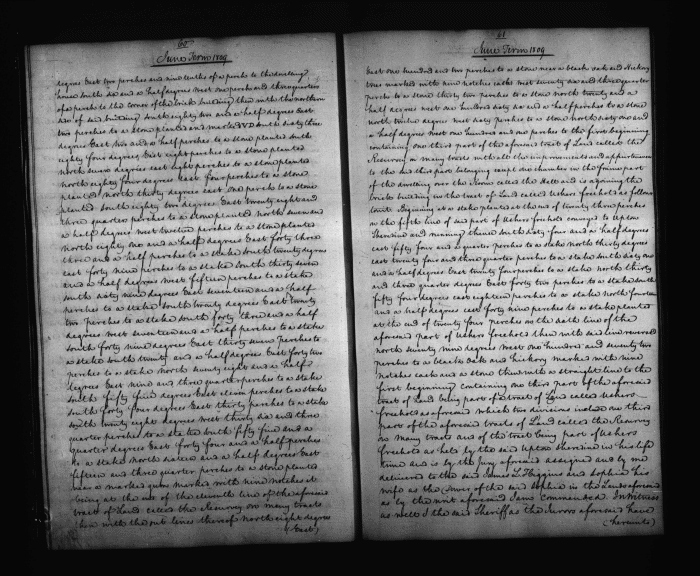 60
June Term 1809
degrees East two perches and nine tenths of a perch to the dwelling
house south six and a half degrees west one perch and three quarters
of a perch to the corner of the brick building then with the northern
side of said building south eighty two and a half degrees East
two perches to a stone planted and marked south sixty three
degrees East two and a half perches to a stone planted south
eighty four degrees East eight perches to a stone planted
north seven degrees east eight perches to a stone planted
north eighty four degrees East four perches to a stone
planted North thirty degrees east one perch to a stone
planted south eighty two degrees East twenty eight and
three quarter perches to a stone planted north seven and
a half degrees west twelve perches to a stone planted
north eighty one and a half degrees East forty three
three and a half perches to a stake south twenty degrees
east forty nine perches to a stake south thirty seven
and a half degrees west fifteen perches to a stake
south sixty nine degrees East seventeen and a half
perches to a stake south twenty degrees East twenty
two perches to a stake south forty three and a half
degrees west seventeen and a half perches to a stake
south forty nine degrees East thirty nine perches to
a stake south twenty and a half degrees East forty two
perches to a stake north twenty eight and a half
degrees East nine and three quarter perches to a stake
south fifty five degrees East eleven perches to a stake
south forty four degrees East thirty perches to a stake
south twenty eight degrees west thirty six and three
quarter perches to a stake south fifty five and a
quarter degrees East forty four and a half perches
to a stake north sixteen and a half degrees East
fifteen and three quarter perches to a stone planted
near a marked gum marked with nine notches it
being at the end of the eleventh line of the aforesaid
tract of Land called the Resurvey on many tracts
then with the out lines thereof north eight degrees
(East)
61
June Term 1809
East one hundred and two perches to a stone near a black oak and Hickory
tree marked with nine notches each west seventy six and three quarter
perches to a stone thirty two perches to a stone north twenty and a
half degrees west one hundred sixty six and a half perches to a stone
north twelve degrees west sixty perches to a stone north sixty one and
a half degrees west one hundred and one perches to the first beginning
containing one third part of the aforesaid tract of Land called the
Resurvey on many tracts with all the improvements and appurtenances
to the said third part belonging except one chamber in the
of the dwelling over the Room called the Hall and is adjoining the
brick building in the tract of Land called Ushers freehold as follows
to wit Beginning at a stake planted at the end of twenty three perches
on the fifth line of said part of Ushers freehold conveyed to Upton
Sheredine and running thence south sixty four and a half degrees
east fifty four and a quarter perches to a stake north thirty degrees
east twenty four and three quarter perches to a stake south sixty one
and a half degrees East twenty four perches to a stake north thirty
and three quarter degrees East forty two perches to a stake south
fifty four degrees east eighteen perches to a stake north fourteen
and a half degrees east forty nine perches to a stake planted
at the end of twenty four perches on the sixth line of the
aforesaid part of Ushers freehold then with said line reversed
north seventy nine degrees west one hundred and seventy two
perches to a black oak and hickory marked with nine
notches each and a stone then with a straight line to the
first beginning containing one third part of the aforesaid
tract of Land being part of a tract of Land called Ushers
freehold as aforesaid which two divisions include one third
part of the aforesaid tracts of Land called the Resurvey
on Many tracts and of the tract being part of Ushers
freehold as held by the said Upton Sheredine in his life
time and is by the jury aforesaid assigned and by me
delivered to the said James L Higgins and Sophia his
wife as the Dower of the said Sophia in the Lands aforesaid
as by the writ aforesaid I am commanded. In witness
as well I the said Sheriff as the Jurors aforesaid have
(hereunto)